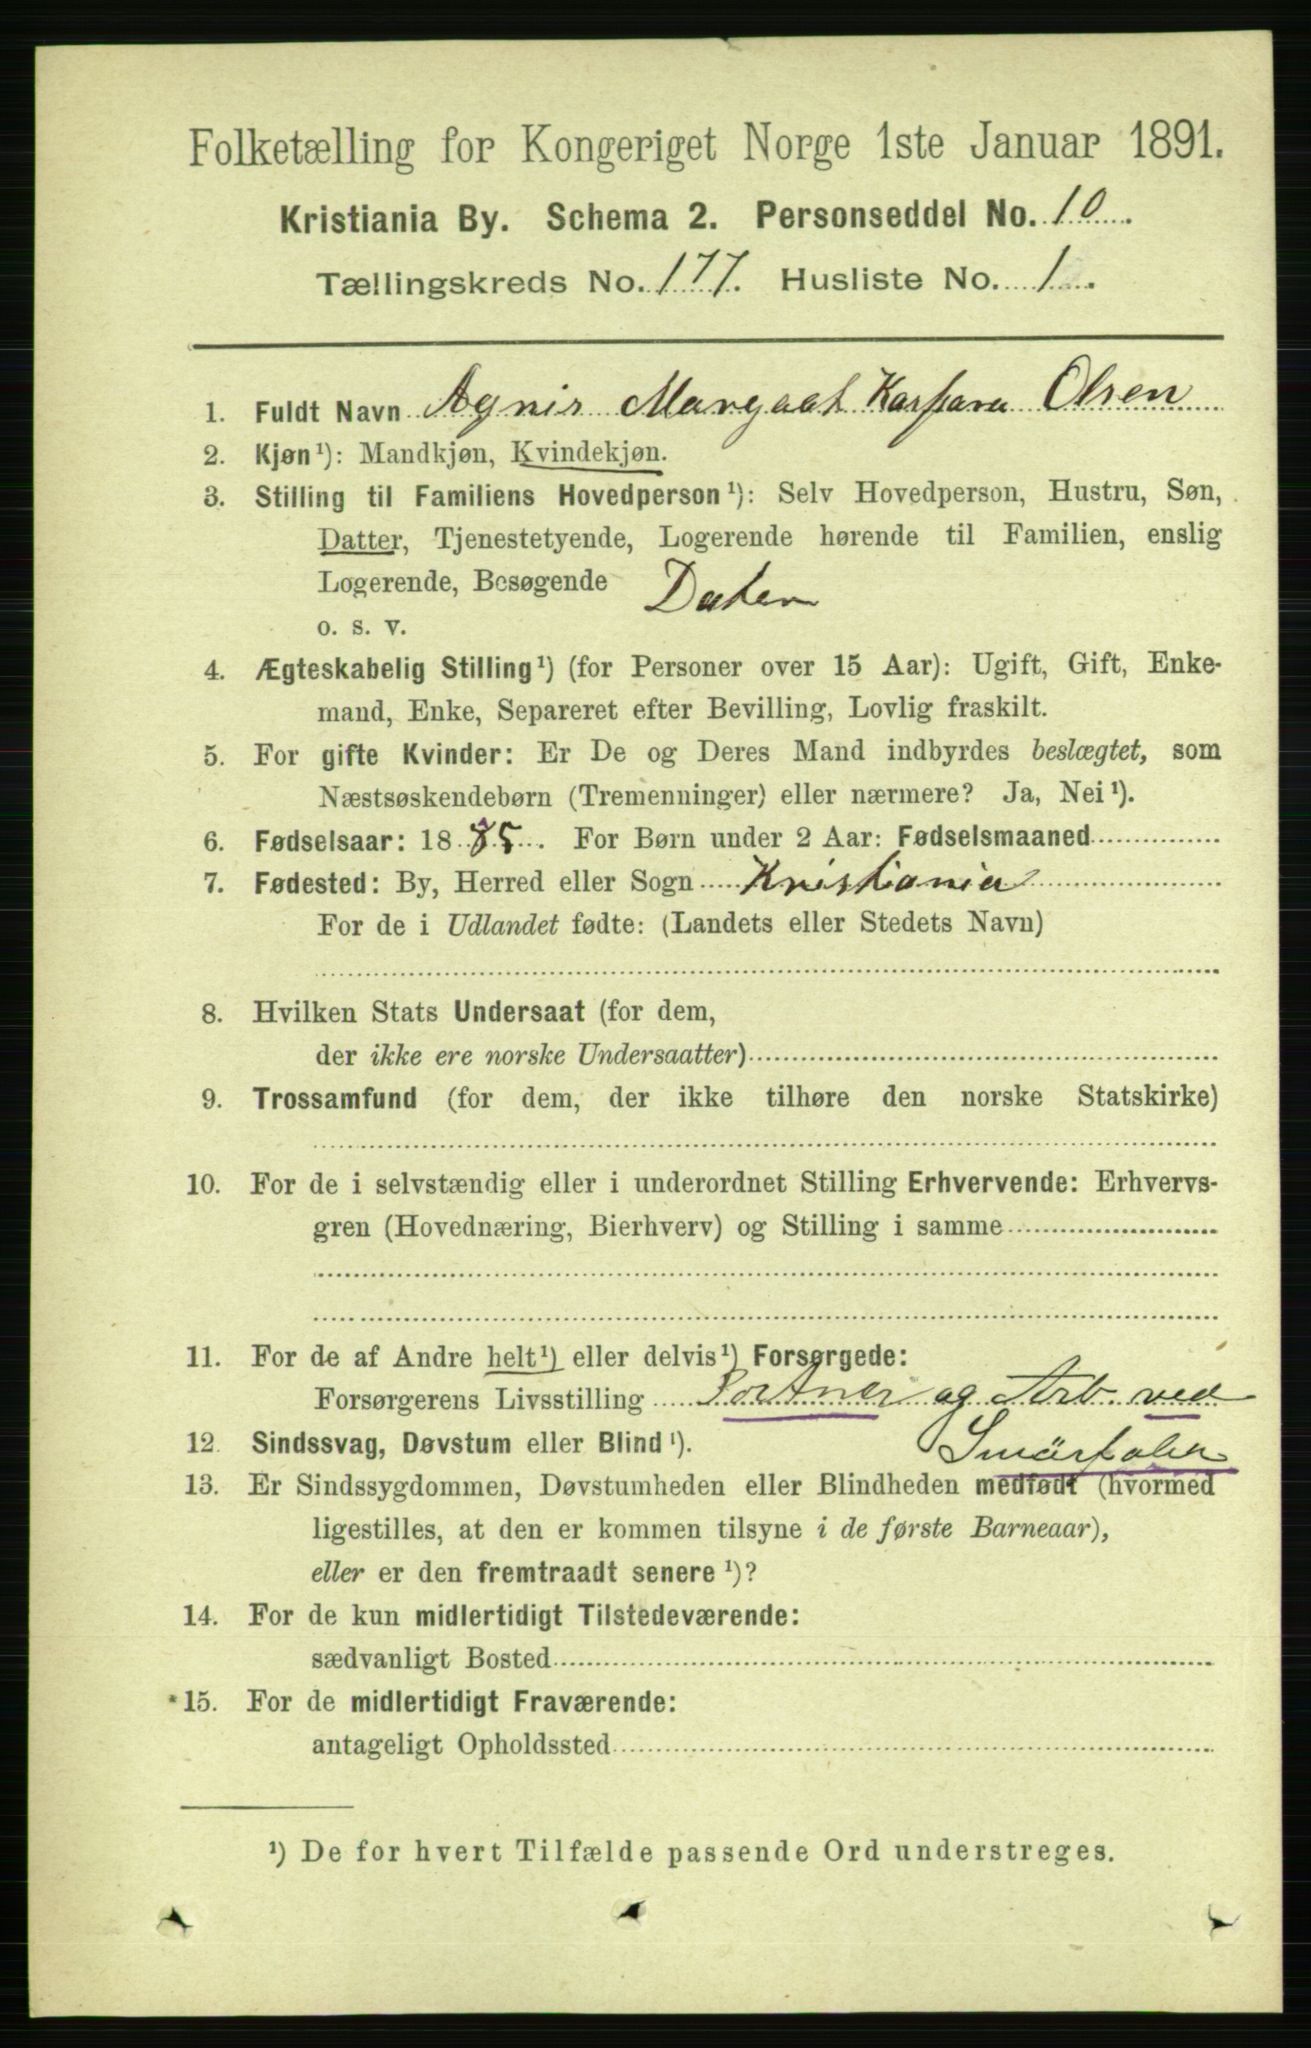 Folketælling for Kongeriget Norge 1ste Januar 1891.
Kristiania By. Schema 2. Personseddel No. 10.
Tællingskreds No. 177. Husliste No. 1.
1. Fuldt Navn Agnis Margaat Kaspara Olsen
2. Kjøn¹): Mandkjøn, Kvindekjøn.
3. Stilling til Familiens Hovedperson¹): Selv Hovedperson, Hustru, Søn,
Datter, Tjenestetyende, Logerende hørende til Familien, enslig
Logerende, Besøgende Dater
o. s. v.
4. Ægteskabelig Stilling¹) (for Personer over 15 Aar): Ugift, Gift, Enke-
mand, Enke, Separeret efter Bevilling, Lovlig fraskilt.
5. For gifte Kvinder: Er De og Deres Mand indbyrdes beslægtet, som
Næstsøskendebørn (Tremenninger) eller nærmere? Ja, Nei¹).
6. Fødselsaar: 1885. For Børn under 2 Aar: Fødselsmaaned
7. Fødested: By, Herred eller Sogn Kristiania
For de i Udlandet fødte: (Landets eller Stedets Navn)
8. Hvilken Stats Undersaat (for dem,
der ikke ere norske Undersaatter)
9. Trossamfund (for dem, der ikke tilhøre den norske Statskirke)
10. For de i selvstændig eller i underordnet Stilling Erhvervende: Erhvervs-
gren (Hovednæring, Bierhverv) og Stilling i samme
11. For de af Andre helt¹) eller delvis¹) Forsørgede:
Forsørgerens Livsstilling Portner og Arb. ved
Smörfabr
12. Sindssvag, Døvstum eller Blind¹).
13. Er Sindssygdommen, Døvstumheden eller Blindheden medfødt (hvormed
ligestilles, at den er kommen tilsyne i de første Barneaar),
eller er den fremtraadt senere¹)?
14. For de kun midlertidigt Tilstedeværende:
sædvanligt Bosted
15. For de midlertidigt Fraværende:
antageligt Opholdssted
¹) De for hvert Tilfælde passende Ord understreges.